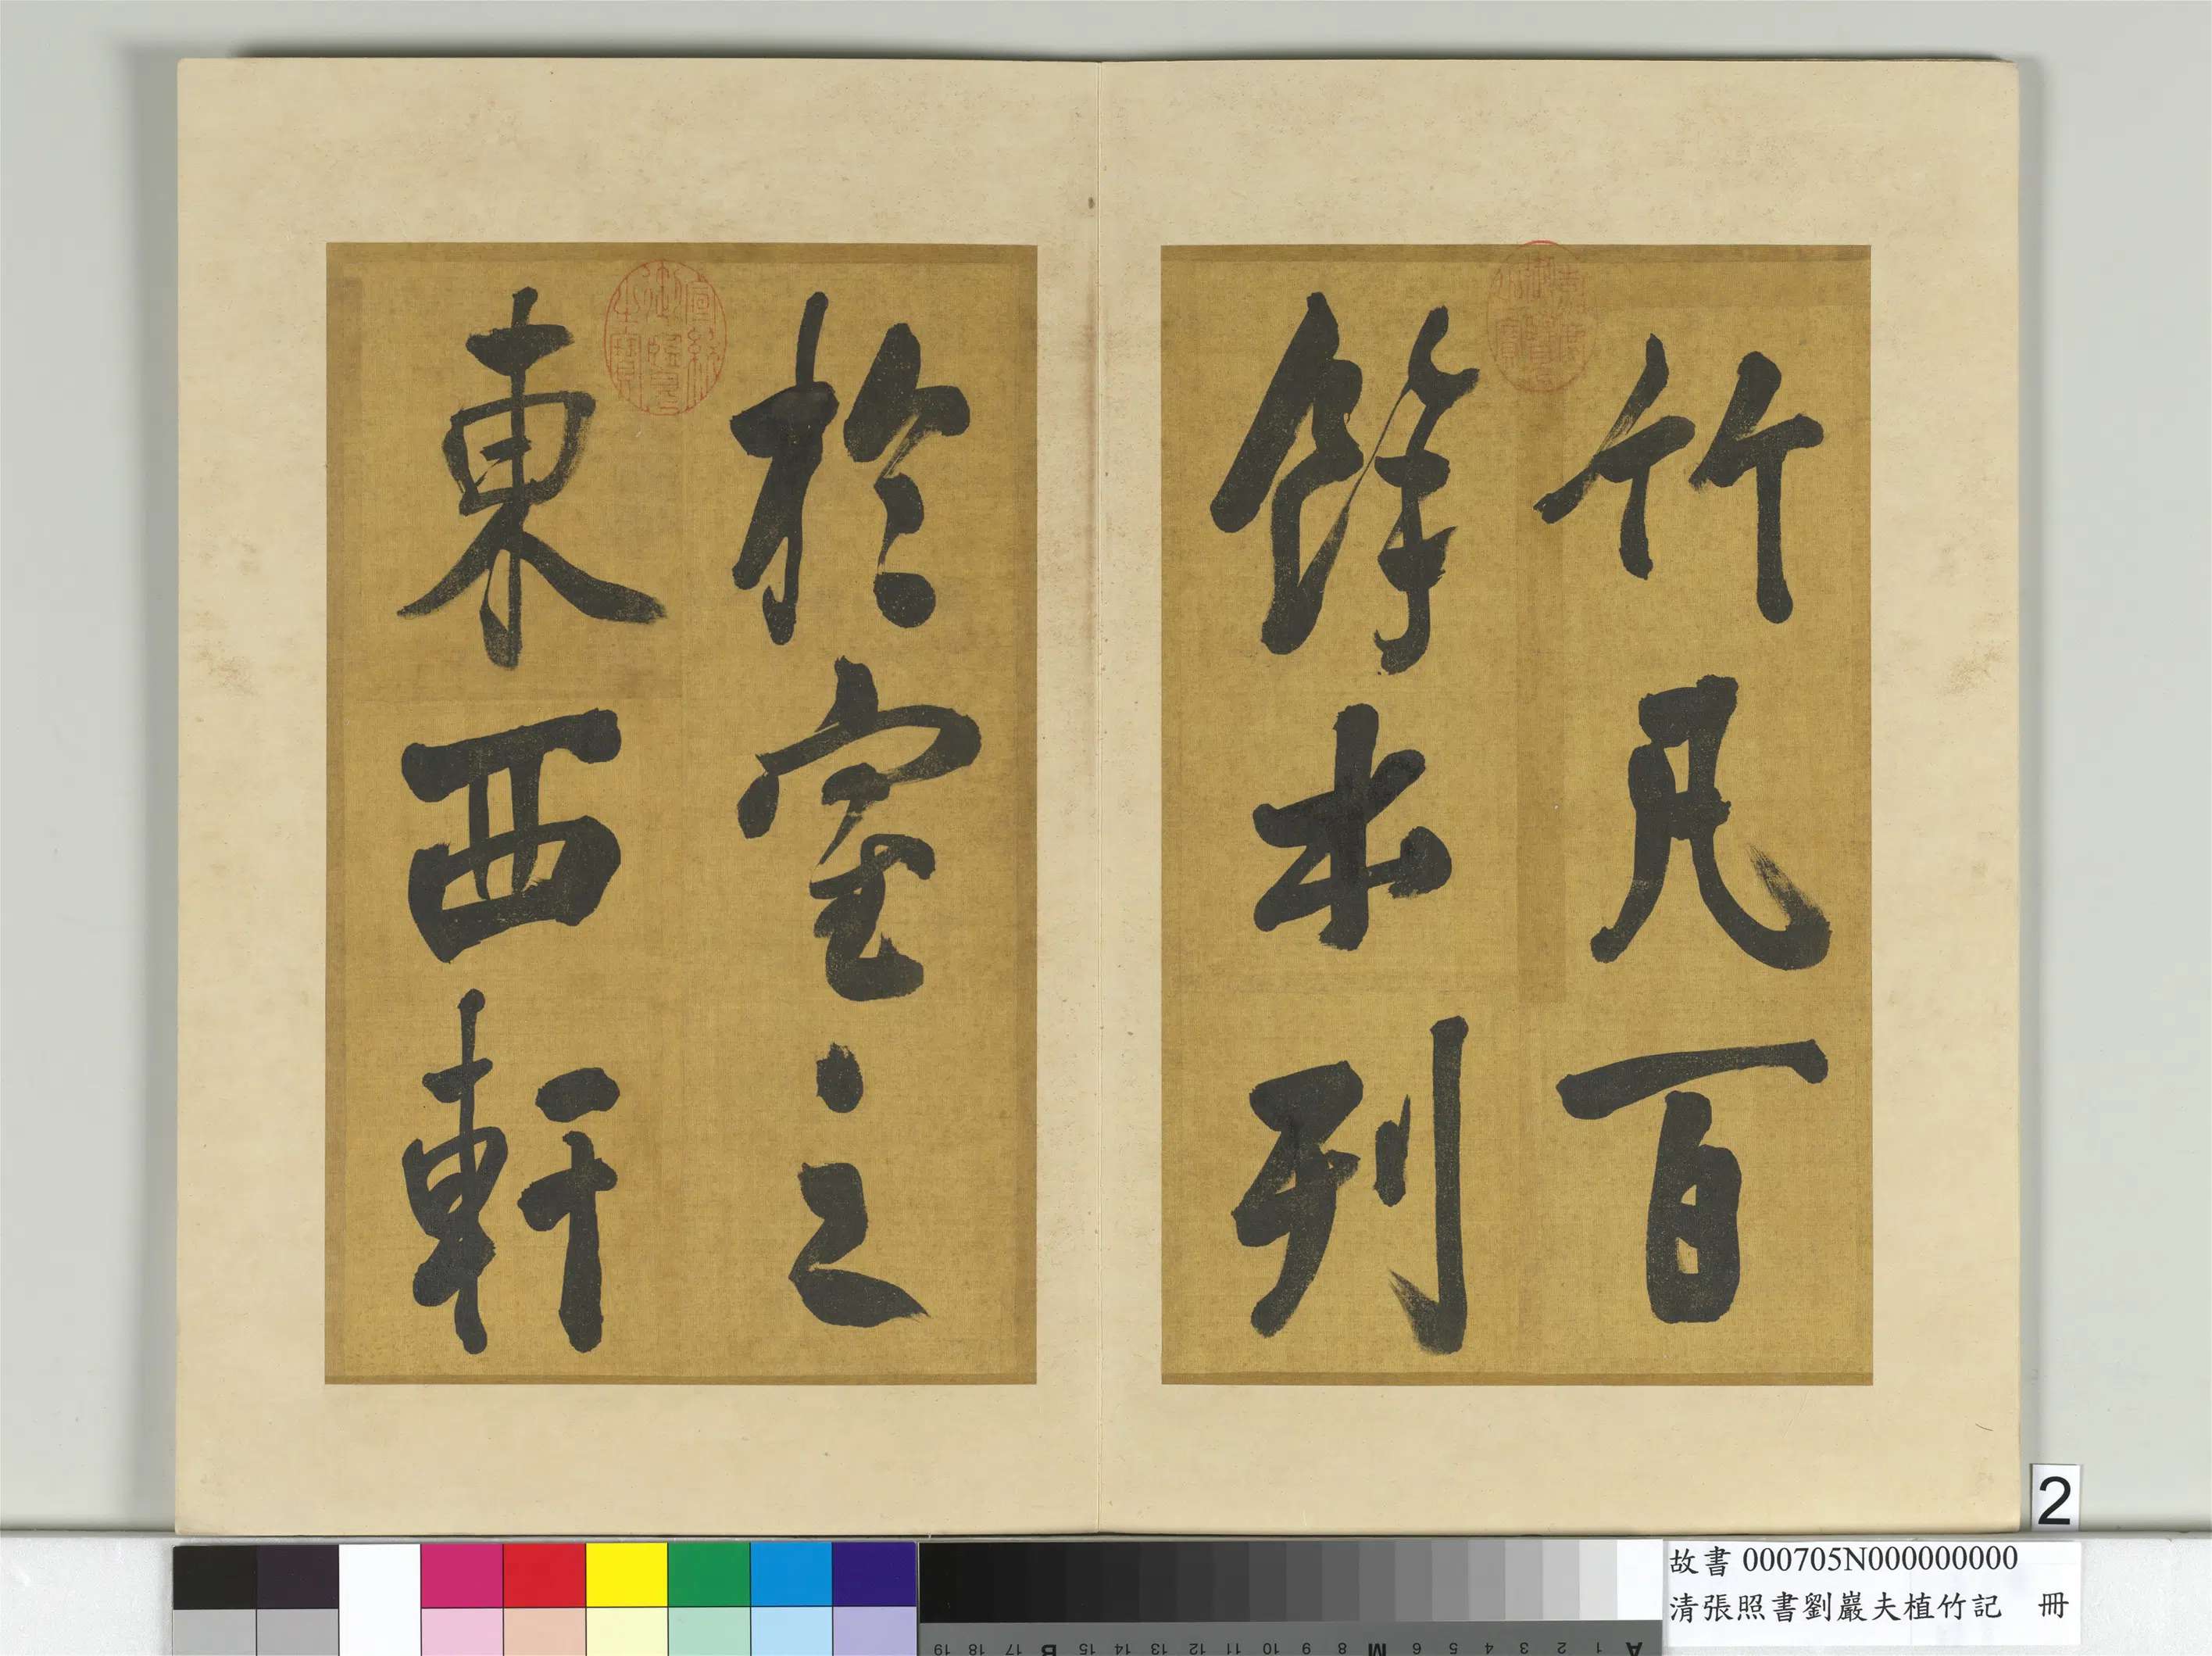 竹凡百
餘本列
於室之
東西軒
2
故書 000705N000000000
清張照書劉巖夫植竹記 冊
A 1 2 3 4 5 6 M 8 9 10 11 12 13 14 15 B 17 18 19